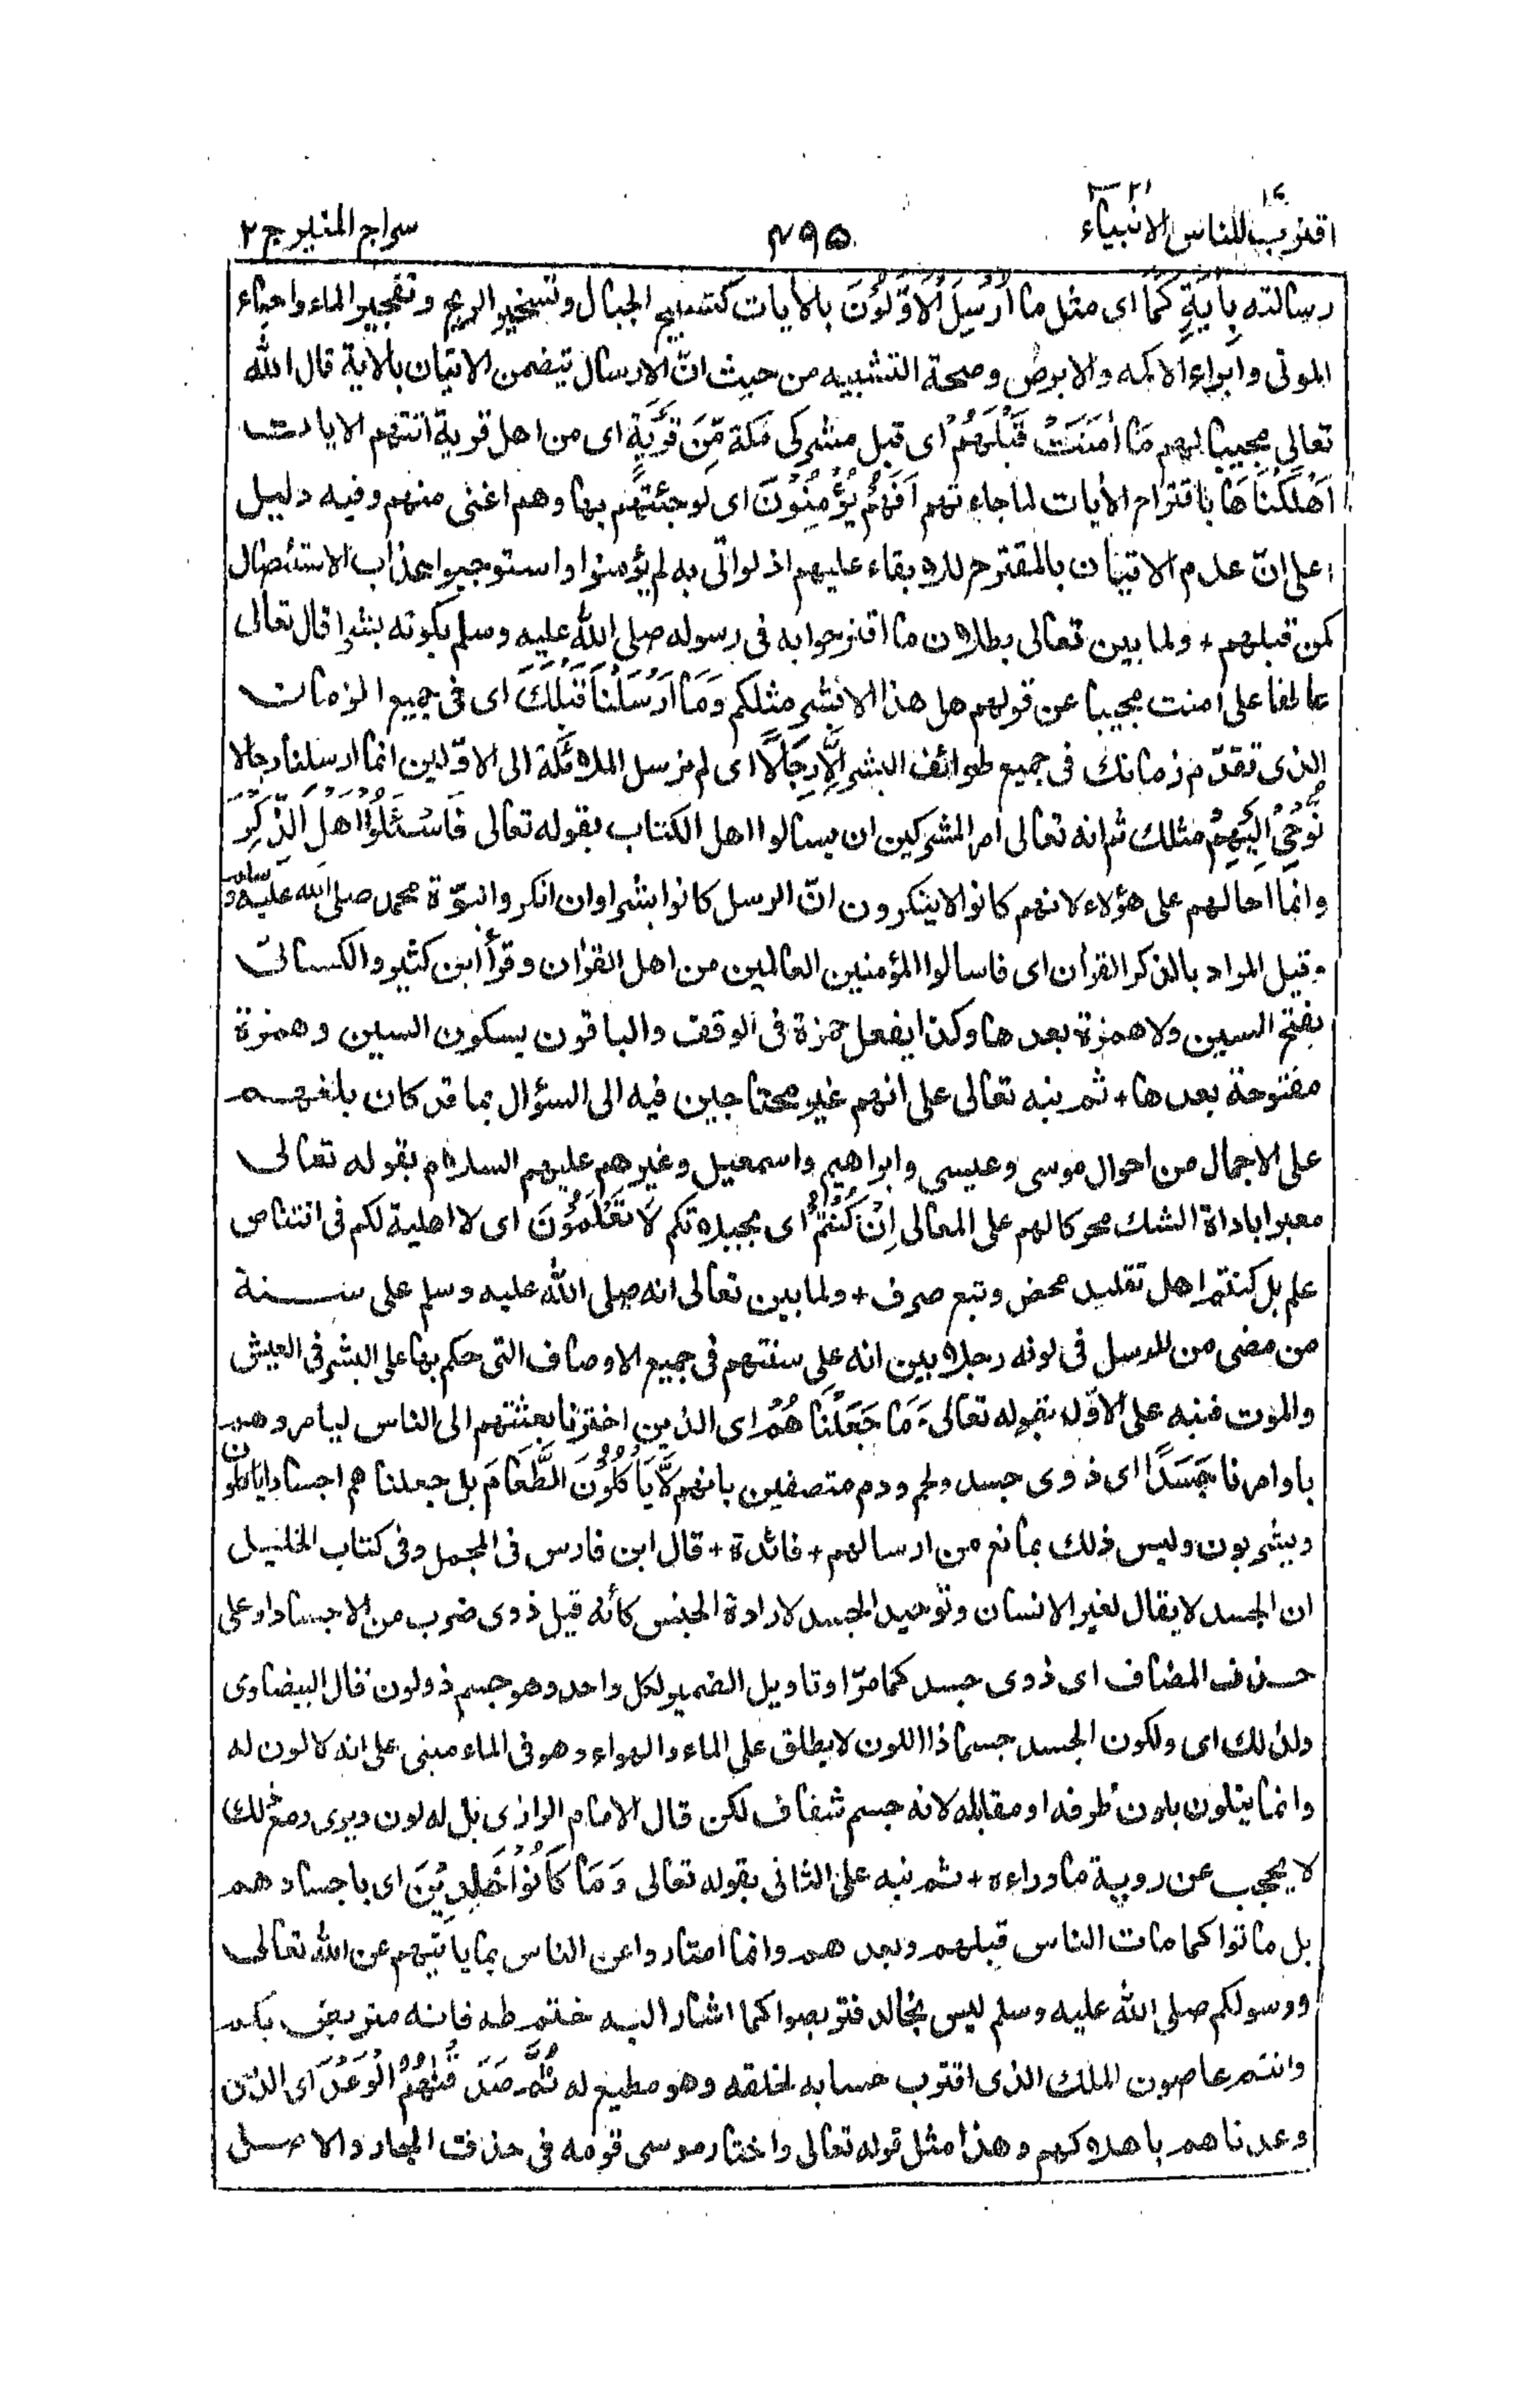 اقترب للناس ١٧ الانبياء ٢١
٤٩٥
سراج المنير ج ٢
رسالته بِاٰيَةٍ كَمَا اى مثل ما اُرْسِلَ الْاَوَّلُوْنَ بالاٰيات كتسبيح الجبال وتسخير الريح وتفجير الماء واحياء
الموتى وابراء الاكمه والابرص وصحة التشبيه من حيث انّ الارسال تيضمن الاتيان بالاية قال الله
تعالى مجيبا لهم مَا اٰمَنَتْ قَبْلَهُمْ اى قبل مشركى مكة مِّنْ قَرْيَةٍ اى من اهل قرية اتتهم الايات
اَهْلَكْنٰهَا باقتراح الاٰيات لما جاءتهم اَفَهُمْ يُؤْمِنُوْنَ اى لو جئتهم بها وهم اغنى منهم وفيه دليل
على انّ عدم الاتيان بالمقترح للابقاء عليهم اذ لواتى به لم يؤمنوا واستوجبوا عذاب الاستئصال
كمن قبلهم + ولما بين تعالى بطلان ما اقترحوا به فى رسوله صلى الله عليه وسلم بكونه بشرا قال تعالى
عاطفا على اٰمنت مجيبا عن قولهم هل هذا الا بشر مثلكم وَمَا اَرْسَلْنَا قَبْلَكَ اى فى جميع الزمان
الذى تقدّم زمانك فى جميع طوائف البشر اِلَّا رِجَالًا اى لم نرسل الملائكة الى الاوّلين انما ارسلنا رجالا
نُّوْحِىْ اِلَيْهِمْ مثلك ثم انه تعالى امر المشركين ان يسالوا اهل الكتاب بقوله تعالى فَاسْئَلُوْا اَهْلَ الذِّكْرِ
وانما احالهم على هؤلاء لانهم كانوا لاينكرون انّ الرسل كانوا بشرا وان انكروا نبوّة محمد صلى الله عليه وسلم
وقيل المراد بالذكر القراٰن اى فاسالوا المؤمنين العالمين من اهل القراٰن وقرأ ابن كثير والكسائى
بفتح السين ولا همزة بعدها وكذا يفعل حمزة فى الوقف والباقون بسكون السين وهمزة
مفتوحة بعدها + ثم نبه تعالى على انهم غير محتاجين فيه الى السؤال بما قد كان بلغهم
على الاجمال من احوال موسى وعيسى وابراهيم واسمعيل وغيرهم عليهم السلام بقوله تعالى
معبرا باداة الشك محركا لهم على المعالى اِنْ كُنْتُمْ اى بجبلاتكم لَا تَعْلَمُوْنَ اى لا اهلية لكم فى اقتناص
علم بل كنتم اهل تقليد محض وتبع صرف + ولما بين تعالى انه صلى الله عليه وسلم على سنة
من مضى من الرسل فى كونه رجلا بين انه على سنتهم فى جميع الاوصاف التى حكم بها على البشر فى العيش
والموت فنبه على الاوّل بقوله تعالى وَمَا جَعَلْنَاهُمْ اى الذين اخترنا بعثتهم الى الناس ليامروهم
باوامرنا جَسَدًا اى ذوى جسد ولحم ودم متصفين بانهم لَّا يَاْكُلُوْنَ الطَّعَامَ بل جعلناهم اجسادا ياكلون
ويشربون وليس ذلك بمانع من ارسالهم + فائدة + قال ابن فارس فى المجمل وفى كتاب الخليل
ان الجسد لا يقال لغير الانسان وتوحيد الجسد لارادة الجنس كأنه قيل ذوى ضرب من الاجساد او على
حذف المضاف اى ذوى جسد كما مرّ او تاويل الضمير لكل واحد وهو جسم ذو لون قال البيضاوى
ولذلك اى ولكون الجسد جسما ذا اللون لايطلق على الماء والهواء وهو فى الماء مبنى على انه لا لون له
وانما يتلون بلون ظرفه او مقابله لانه جسم شفاف لكن قال الامام الرازى بل له لون ويرى ومع ذلك
لا يحجب عن روية ما وراءه + ثم نبه على الثانى بقوله تعالى وَمَا كَانُوْا خٰلِدِيْنَ اى باجسادهم
بل ماتوا كما مات الناس قبلهم وبعدهم وانما امتازوا عن الناس بما ياتيهم عن الله تعالى
ورسولكم صلى الله عليه وسلم ليس بخالد فتربصوا كما اشار اليه ختم طه فانه متربص بكم
وانتم عاصون الملك الذى اقترب حسابه لخلقه وهو مطيع له ثُمَّ صَدَقْنٰهُمُ الْوَعْدَ اى الذى
وعدناهم باهلاكهم وهذا مثل قوله تعالى واختار موسى قومه فى حذف الجار والاصل